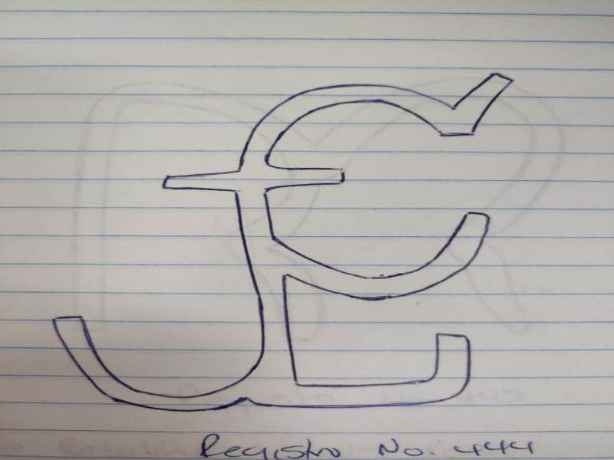 Registro No. 444